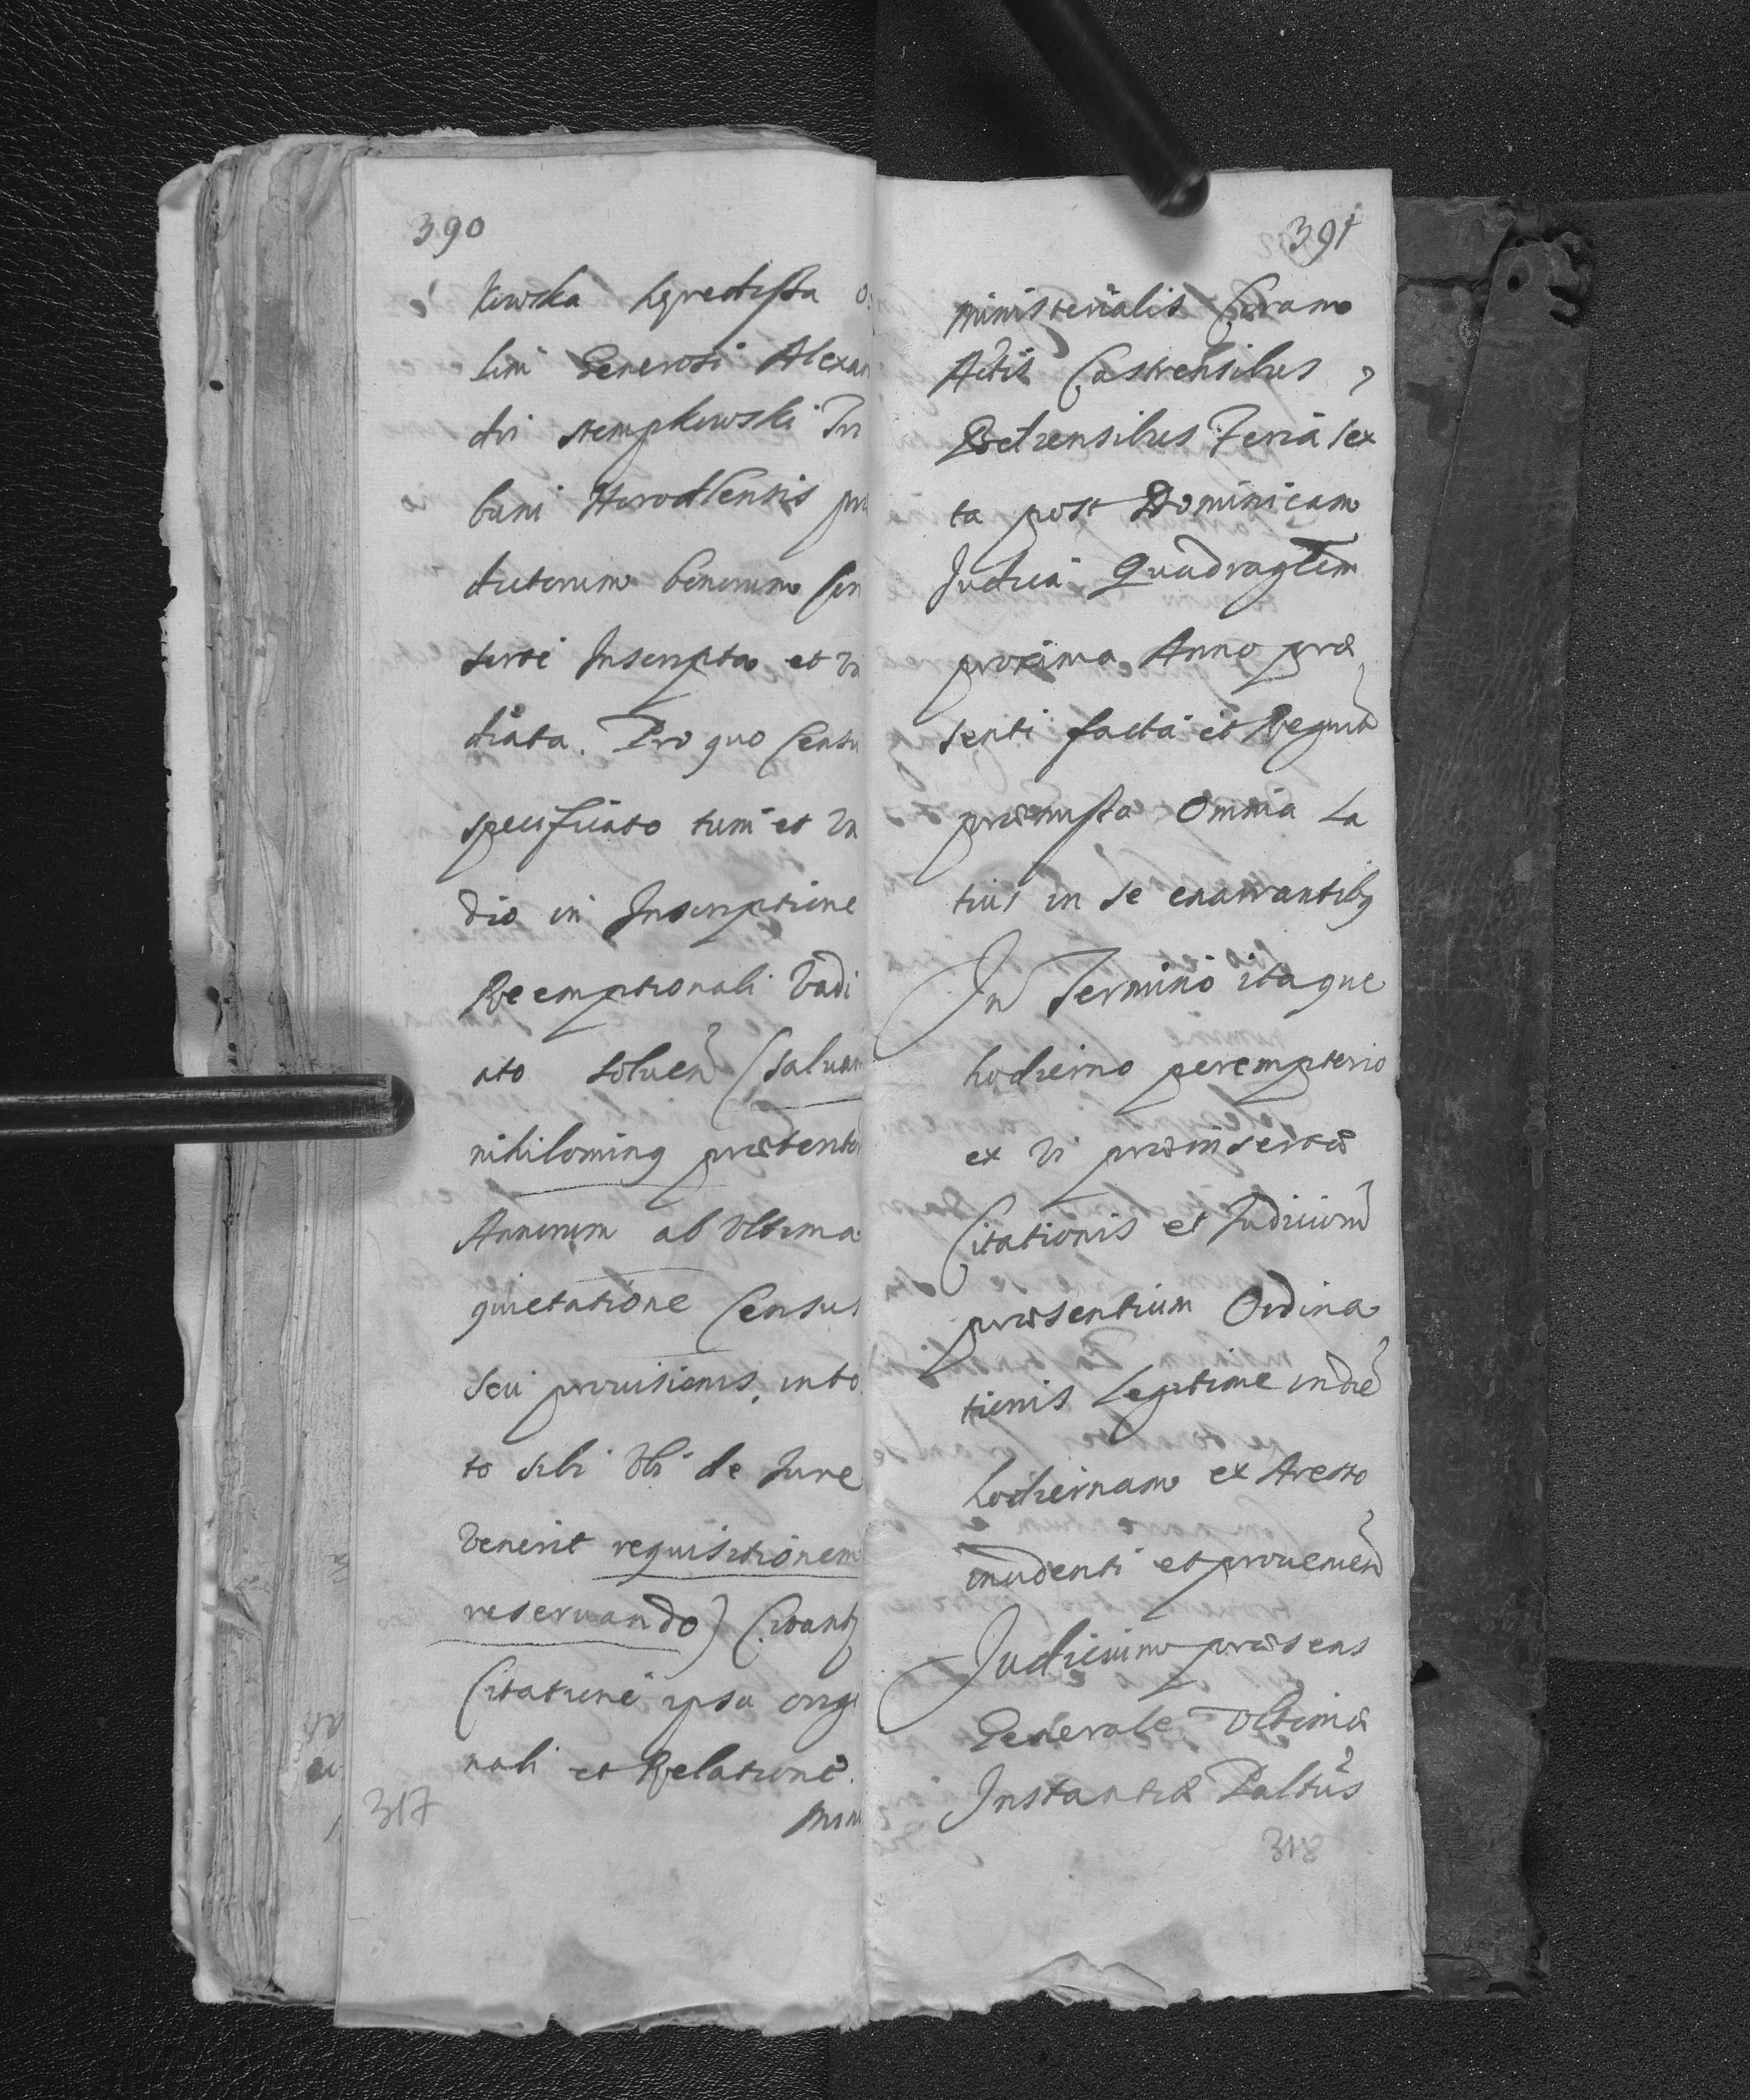 390
kowska hæreditista o
lim Generosi Alexan
dri Stempkowski Tri
buni Horodlensis præ
dictorum bonorum con
sorte Inscripta et Va
diata. Pro quo Censu
specificato tum et Va
dio in Inscriptione
Reemptionali Vadi
ato soluen (saluam
nihilominq prætento
Annorum ab Vltima
quietatione Census
seu prouisionis, into
to sibi Vbi de Jure
Venerit requisitionem
reservando) Citantq
Citatione ipsa origi
nali et Relatione
Mini
317
391
ministerialis Coram
Actis Castrensibus
Feria sex
ta post Dominicam
Judica Quadraglem
proxima Anno præ
senti facta et Regnit
præmissa Omnia La
tius in se enarrantibq
In Termino itaque
hodierno peremptorio
ex Vi præinsertæ
Citationis et Judiciorum
præsentium Ordina
tionis Legitime in die
hodiernam ex Aresto
incidenti et prouenien
Judicium præsens
Generale Vltimæ
Instantiæ Paltus
318